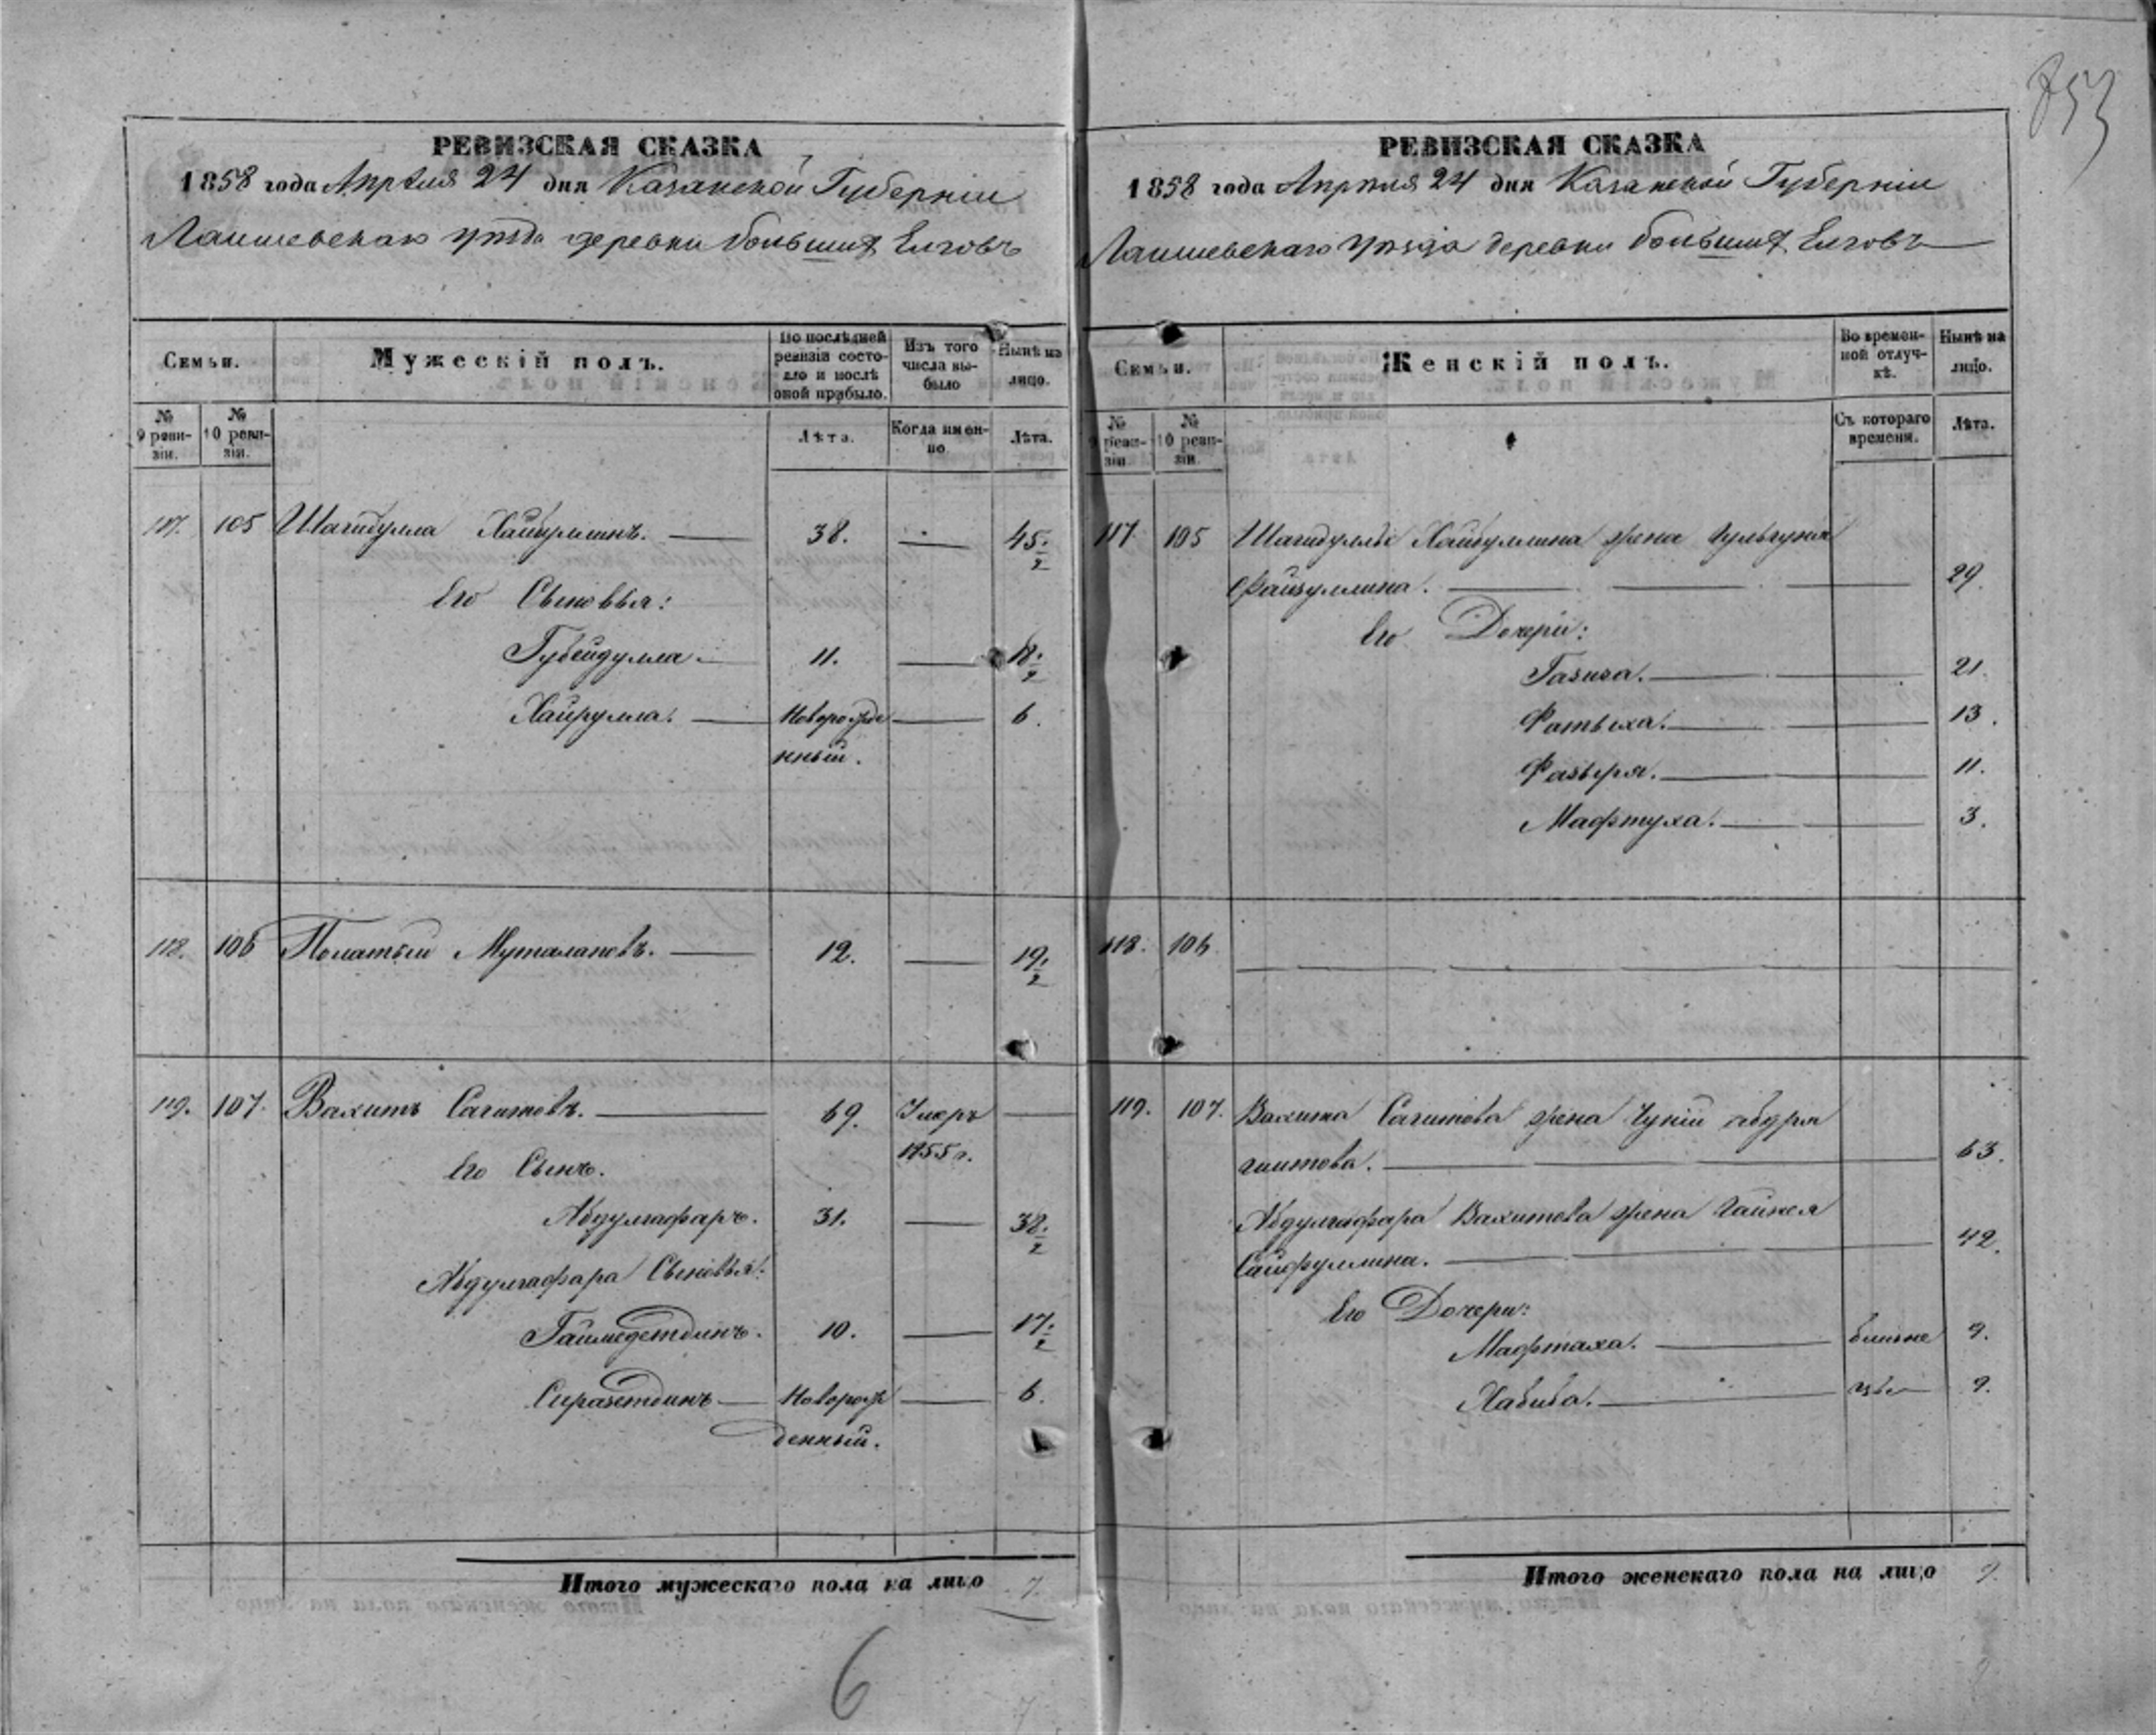 853
РЕВИЗСКАЯ СКАЗКА
1858 года Апреля 24 дня Казанской Губерніи
Лаишевскаго уѣзда деревни большихъ Елговъ
Семьи.
Мужескій полъ.
По послѣдней ревизіи состояло и послѣ оной прибыло.
Изъ того числа выбыло
Нынѣ на лицо.
№ 9 ревизіи.
№ 10 ревизіи.
Лѣта.
Когда именно
Лѣта.
117. 105 Шагидулла Хайбуллинъ. 38. 45 1/2
Его Сыновья:
Губейдулла 11. 18 1/2
Хайрулла. Новорожде 6.
нный.
118. 106 Муталаповъ. 12. 19 1/2
119. 107. Вахитъ Сагитовъ. 69. Умеръ
1855 г.
Его Сынъ.
Абдулгафаръ. 31. 38 1/2
Абдулгафара Сыновья:
10. 17 1/2
Сиразетдинъ Новорож 6.
денный.
Итого мужескаго пола на лицо 7.
6
РЕВИЗСКАЯ СКАЗКА
1858 года Апреля 24 дня Казанской Губерніи
Лаишевскаго уѣзда деревни большихъ Елговъ
Семьи.
Женскій полъ.
Во временной отлучкѣ.
Нынѣ на лицо.
№ 9 ревизіи
№ 10 ревизіи.
Съ котораго времени.
Лѣта.
117 105 Шагидуллы Хайбуллина жена
Файзуллина. 29.
Его Дочери:
Газиза. 21.
Фатыха. 13.
Фазыря. 11.
Мафтуха. 3.
118. 106
119. 107. Вахита Сагитова жена
гитова. 63.
Абдулгафара Вахитова жена
Сайфуллина. 42.
Его Дочери:
Мафтаха. 9.
Хабиба. 9.
Итого женскаго пола на лицо 9.